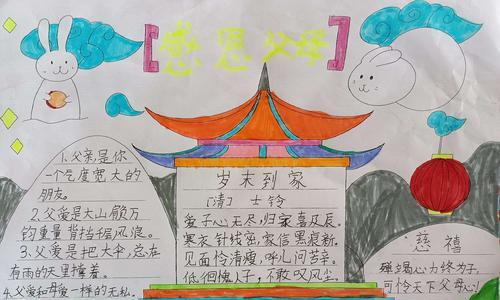 感恩父母
1.父亲是你
一个气度宽大的
朋友。
2.父爱是大山一般万
钧重量背挡千层风浪。
3.父爱是把大伞,总在
有雨的天里撑着。
4.父爱和母爱一样的无私。
岁末到家
[清] 士铃
爱子心无尽,归家喜及辰。
寒衣针线密,家信黑痕新。
见面怜清瘦,呼儿问苦辛。
低徊愧人子,不敢叹风尘。
慈禧
殚竭心力终为子,
可怜天下父母心!